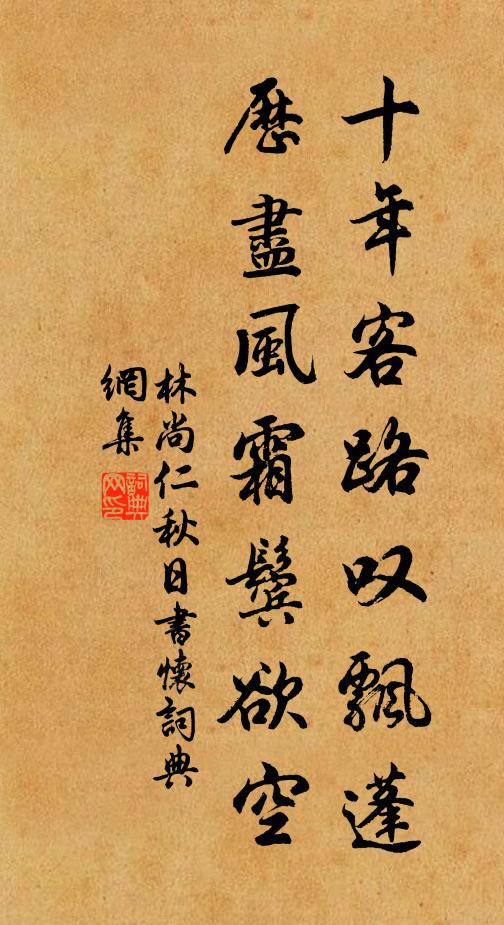 十年客路叹飄蓬
歷盡風霜鬓欲空
林尚仁秋日書懷詞典
網集
詞典
网印